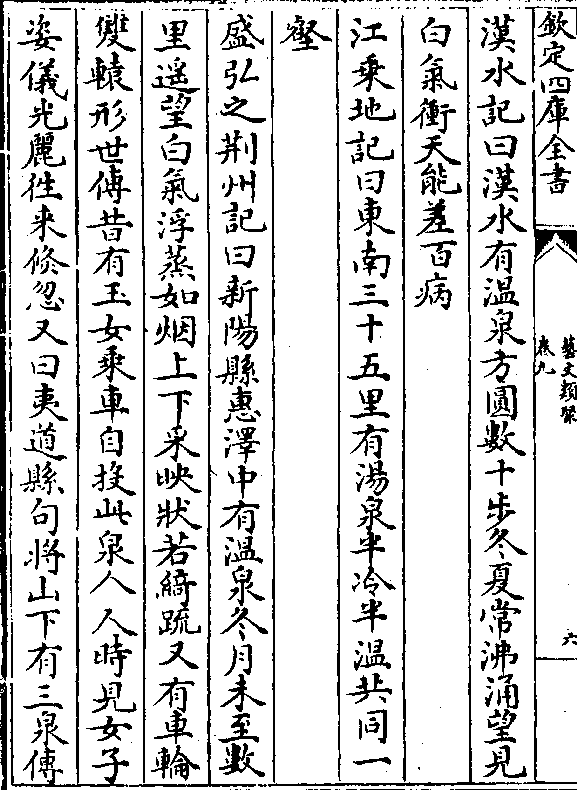 欽定四庫全書
藝文類聚
卷九
六
漢水記曰漢水有温泉方圓數十步冬夏常沸涌望見
白氣衝天能差百病
江乗地記曰東南三十五里有湯泉半冷半温共同一
壑
盛弘之荆州記曰新陽縣惠澤中有温泉冬月未至數
里遥望白氣浮蒸如烟上下采映狀若綺疏又有車輪
雙轅形世傳昔有玉女乗車自投此泉人人時見女子
姿儀光麗徃来倐忽又曰夷道縣句將山下有三泉傳